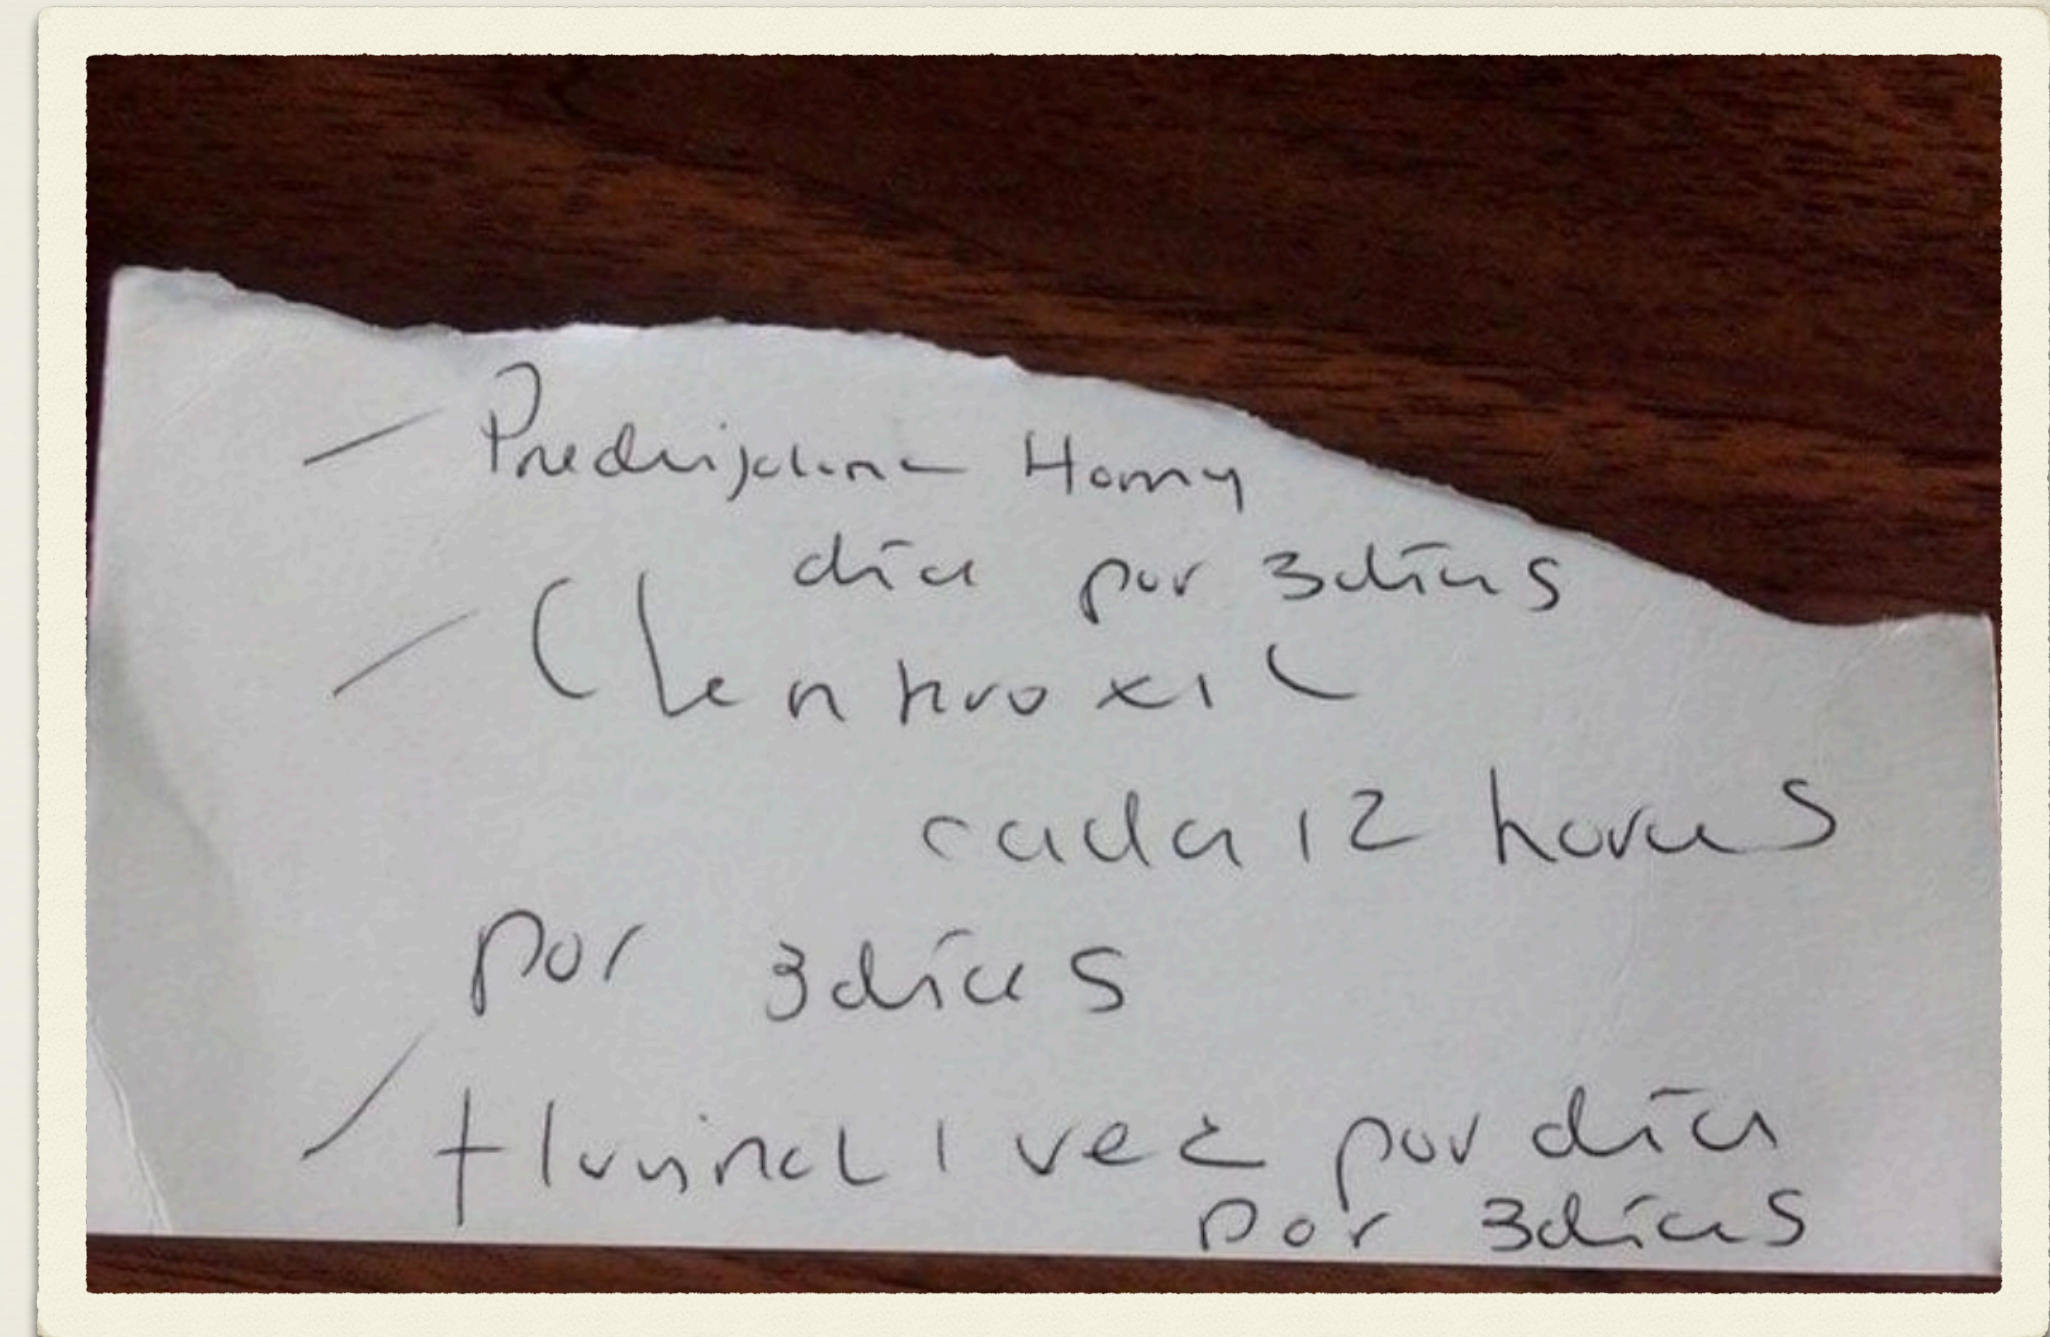 Prednisolona 40mg
día por 3días
Clenbroxil
cada 12 horas
por 3días
fluvinal 1 vez por día
por 3días